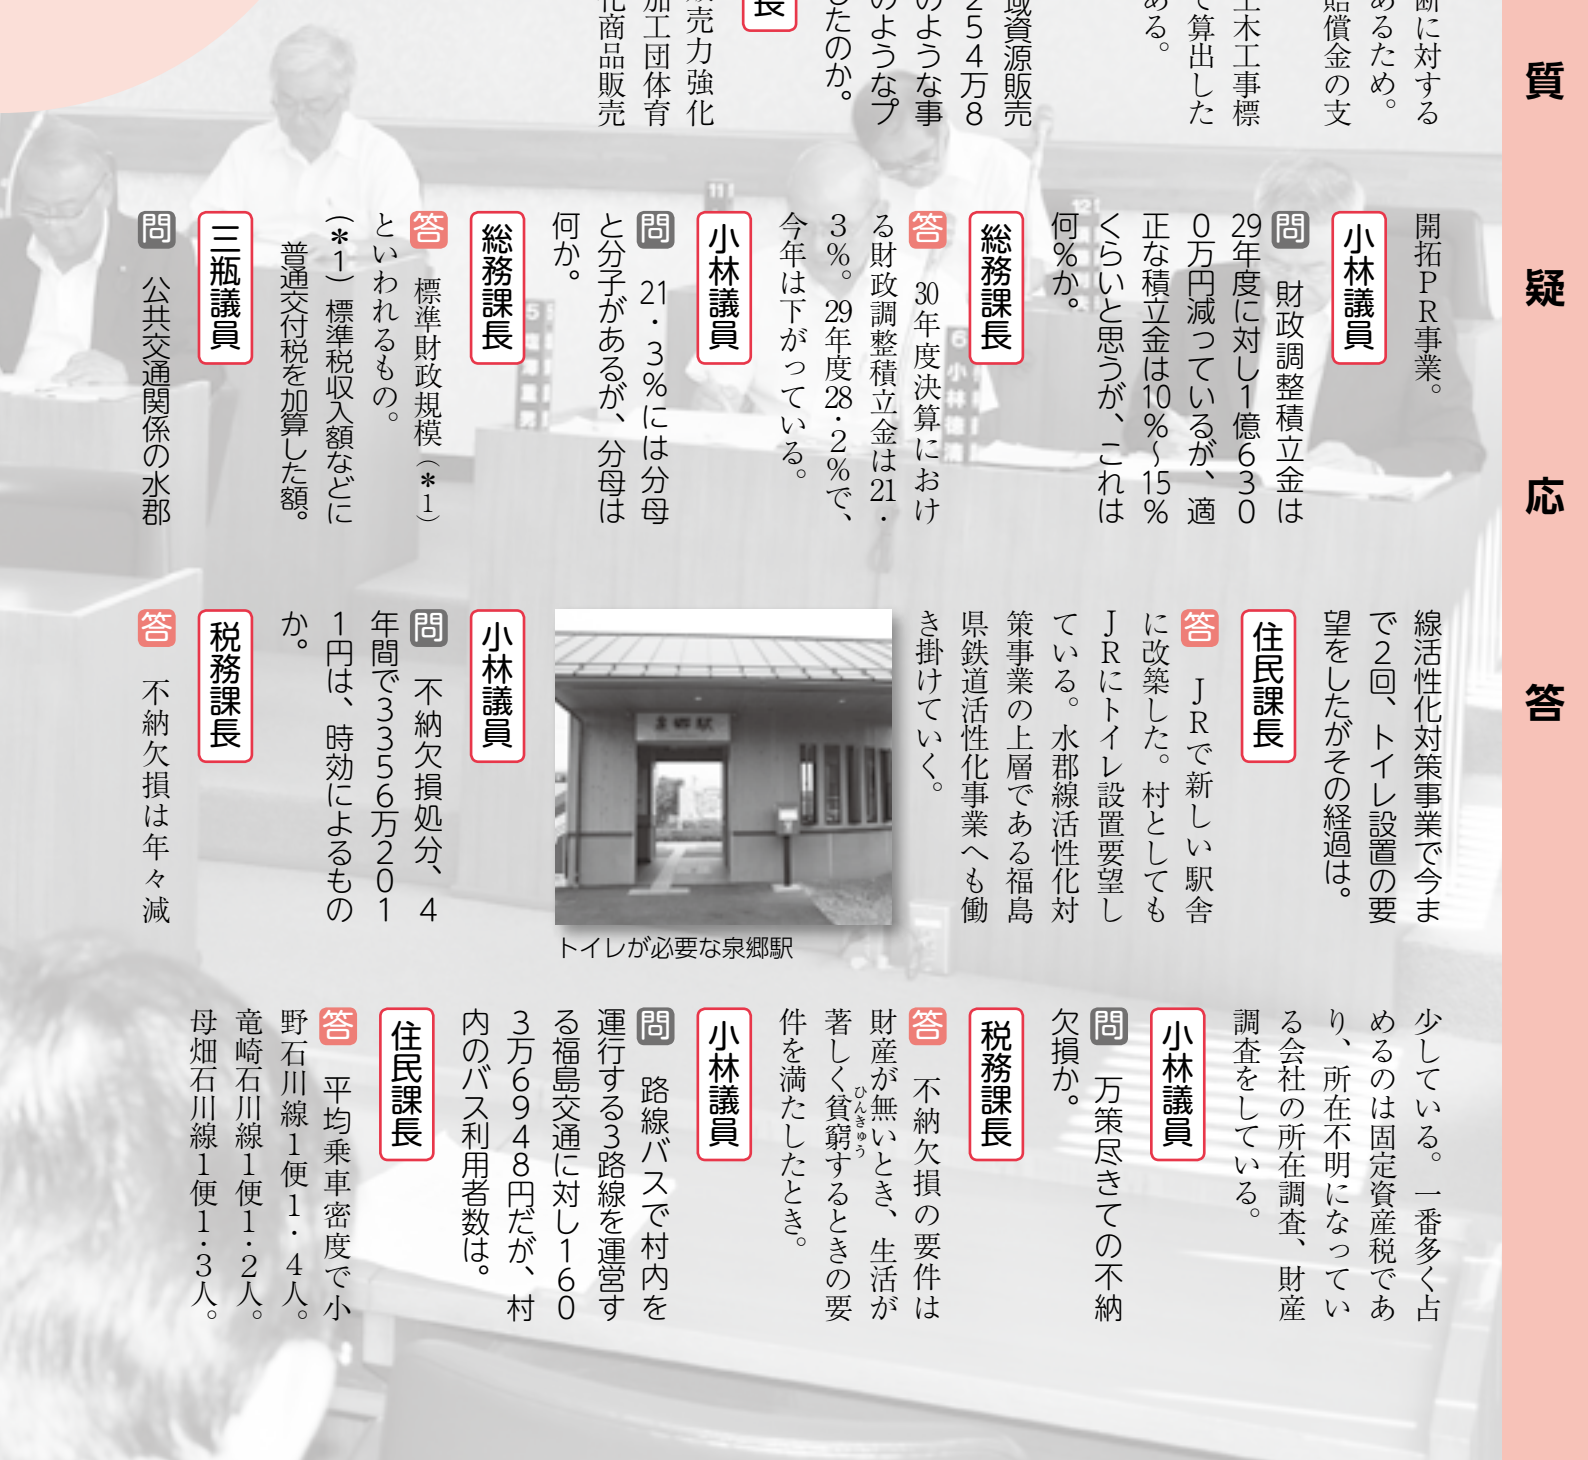 質疑応答
断に対する
あるため。
賠償金の支
土木工事標
て算出した
ある。
域資源販売
２５４万８
のような事
のようなプ
したのか。
長
販売力強化
加工団体育
化商品販売
開拓ＰＲ事業。
小林議員
問　財政調整積立金は
29年度に対し１億６３０
０万円減っているが、適
正な積立金は10％〜15％
くらいと思うが、これは
何％か。
総務課長
答　30年度決算におけ
る財政調整積立金は21・
３％。29年度28・２％で、
今年は下がっている。
小林議員
問　21・３％には分母
と分子があるが、分母は
何か。
総務課長
答　標準財政規模（＊１）
といわれるもの。
（＊１）標準税収入額などに
普通交付税を加算した額。
三瓶議員
問　公共交通関係の水郡
線活性化対策事業で今ま
で２回、トイレ設置の要
望をしたがその経過は。
住民課長
答　ＪＲで新しい駅舎
に改築した。村としても
ＪＲにトイレ設置要望し
ている。水郡線活性化対
策事業の上層である福島
県鉄道活性化事業へも働
き掛けていく。
泉郷駅
トイレが必要な泉郷駅
小林議員
問　不納欠損処分、４
年間で３３５６万２０１
１円は、時効によるもの
か。
税務課長
答　不納欠損は年々減
少している。一番多く占
めるのは固定資産税であ
り、所在不明になってい
る会社の所在調査、財産
調査をしている。
小林議員
問　万策尽きての不納
欠損か。
税務課長
答　不納欠損の要件は
財産が無いとき、生活が
著しく貧窮するときの要
ひんきゅう
件を満たしたとき。
小林議員
問　路線バスで村内を
運行する３路線を運営す
る福島交通に対し１６０
３万６９４８円だが、村
内のバス利用者数は。
住民課長
答　平均乗車密度で小
野石川線１便１・４人。
竜崎石川線１便１・２人。
母畑石川線１便１・３人。
11
12
6小林
5